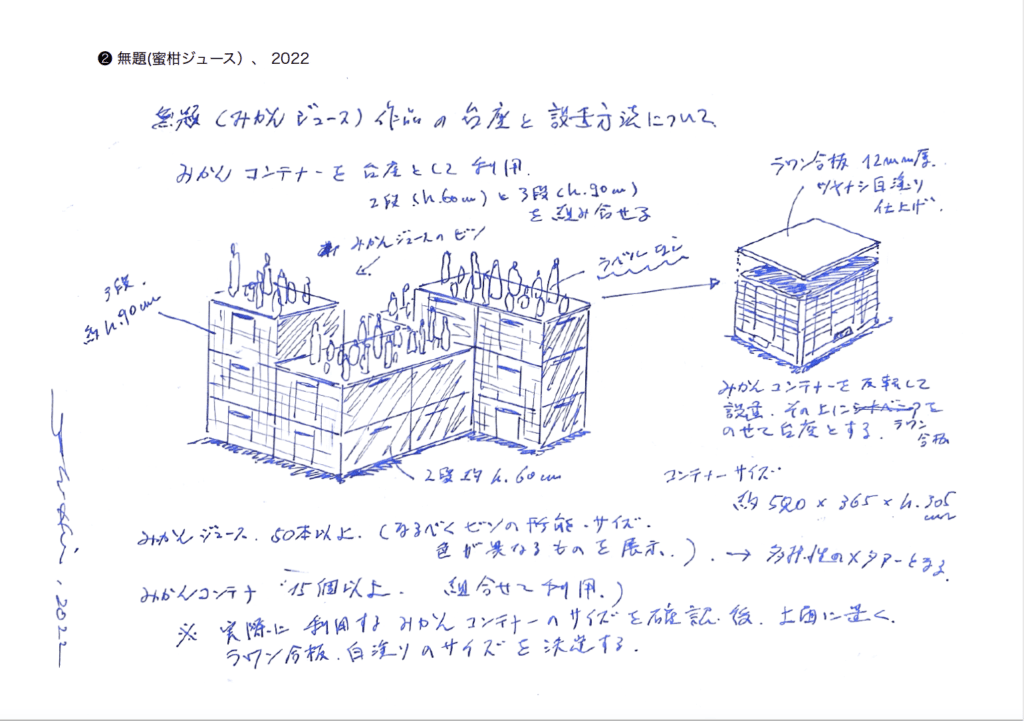 ❷ 無題(蜜柑ジュース)、 2022
無題(みかんジュース)作品の台座と設置方法について
みかんコンテナーを台座として利用.
2段(h.60cm)と3段(h.90cm)
を組み合せる
みかんジュースのビン
ラベルなし
3段.
約h.90cm
ラワン合板 12mm厚.
ツヤナシ白塗り
仕上げ.
みかんコンテナーを反転して
設置. その上に を
のせて台座とする.
ラワン
合板
2段 約 h.60cm
コンテナーサイズ
約 520 × 365 × h.305
みかんジュース. 50本以上. (なるべくビンの形態・サイズ.
色が異なるものを展示.) → 多様性のメタファーとなる.
みかんコンテナ 15個以上. 組合せて利用.)
※ 実際に利用するみかんコンテナーのサイズを確認後. 上面に置く.
ラワン合板. 白塗りのサイズを決定する.
2022